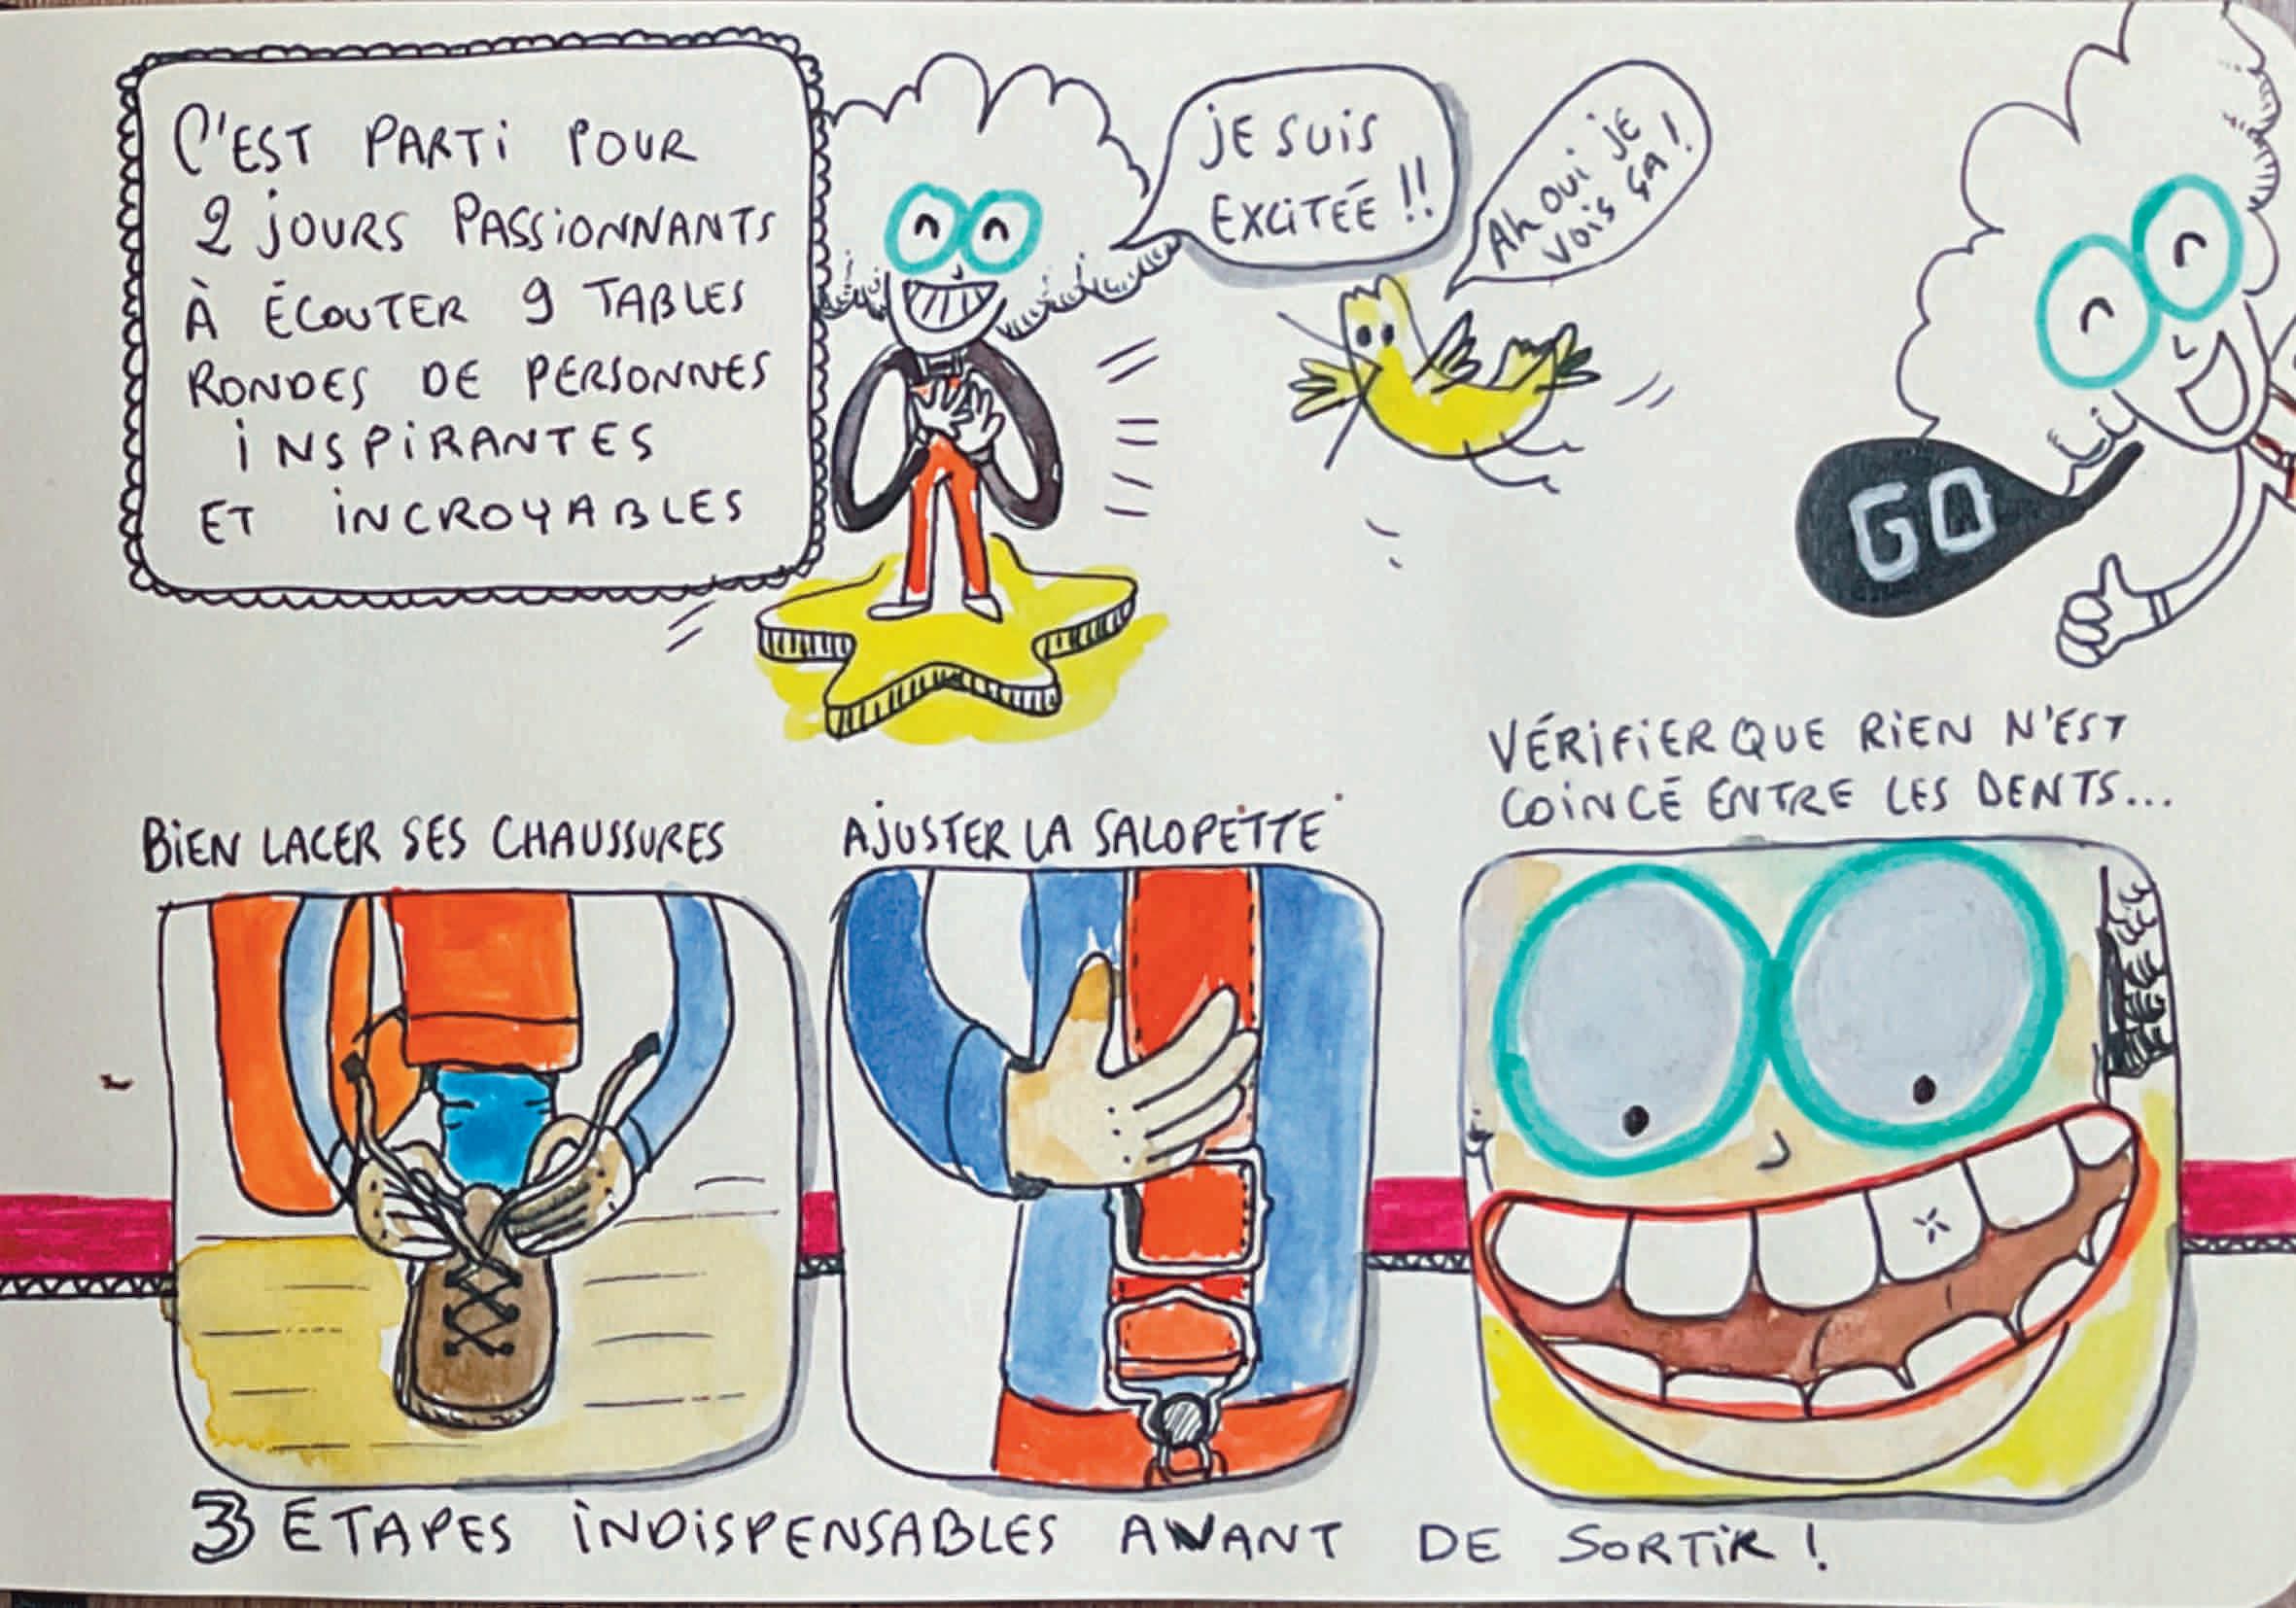 C'EST PARTI POUR
2 JOURS PASSIONNANTS
À ÉCOUTER 9 TABLES
RONDES DE PERSONNES
INSPIRANTES
ET INCROYABLES
JE SUIS
EXCITÉE !!
Ah oui je
vois ça !
GO
BIEN LACER SES CHAUSSURES
AJUSTER LA SALOPETTE
VÉRIFIER QUE RIEN N'EST
COINCÉ ENTRE LES DENTS...
3 ETAPES INDISPENSABLES AVANT DE SORTIR !